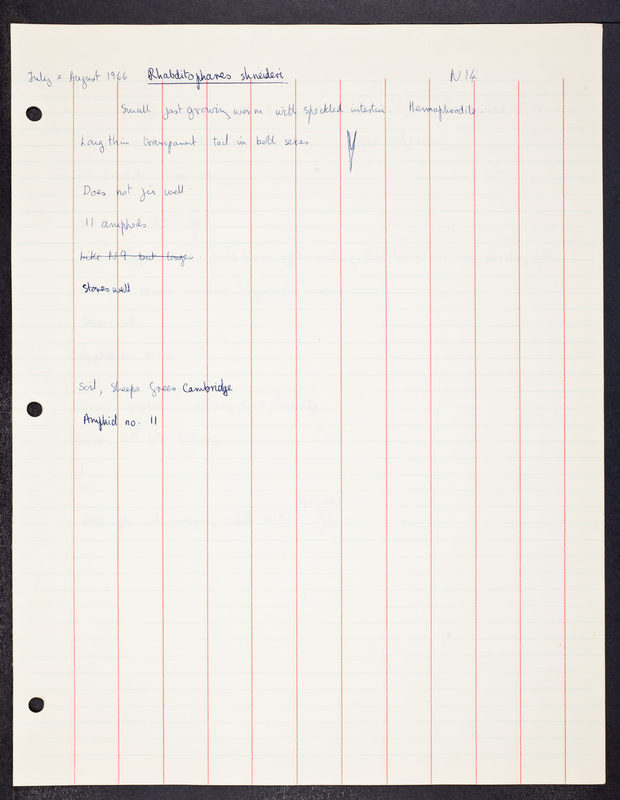 July & August 1966 Rhabditophanes shneideri N14
Small fast growing worm with speckled intestin. Hermaphrodite.
Long thin transparent tail in both sexes
Does not fix well.
11 amphids
Like N9 but longer.
Stores well
Soil, Sheeps Green Cambridge
Amphid no. 11